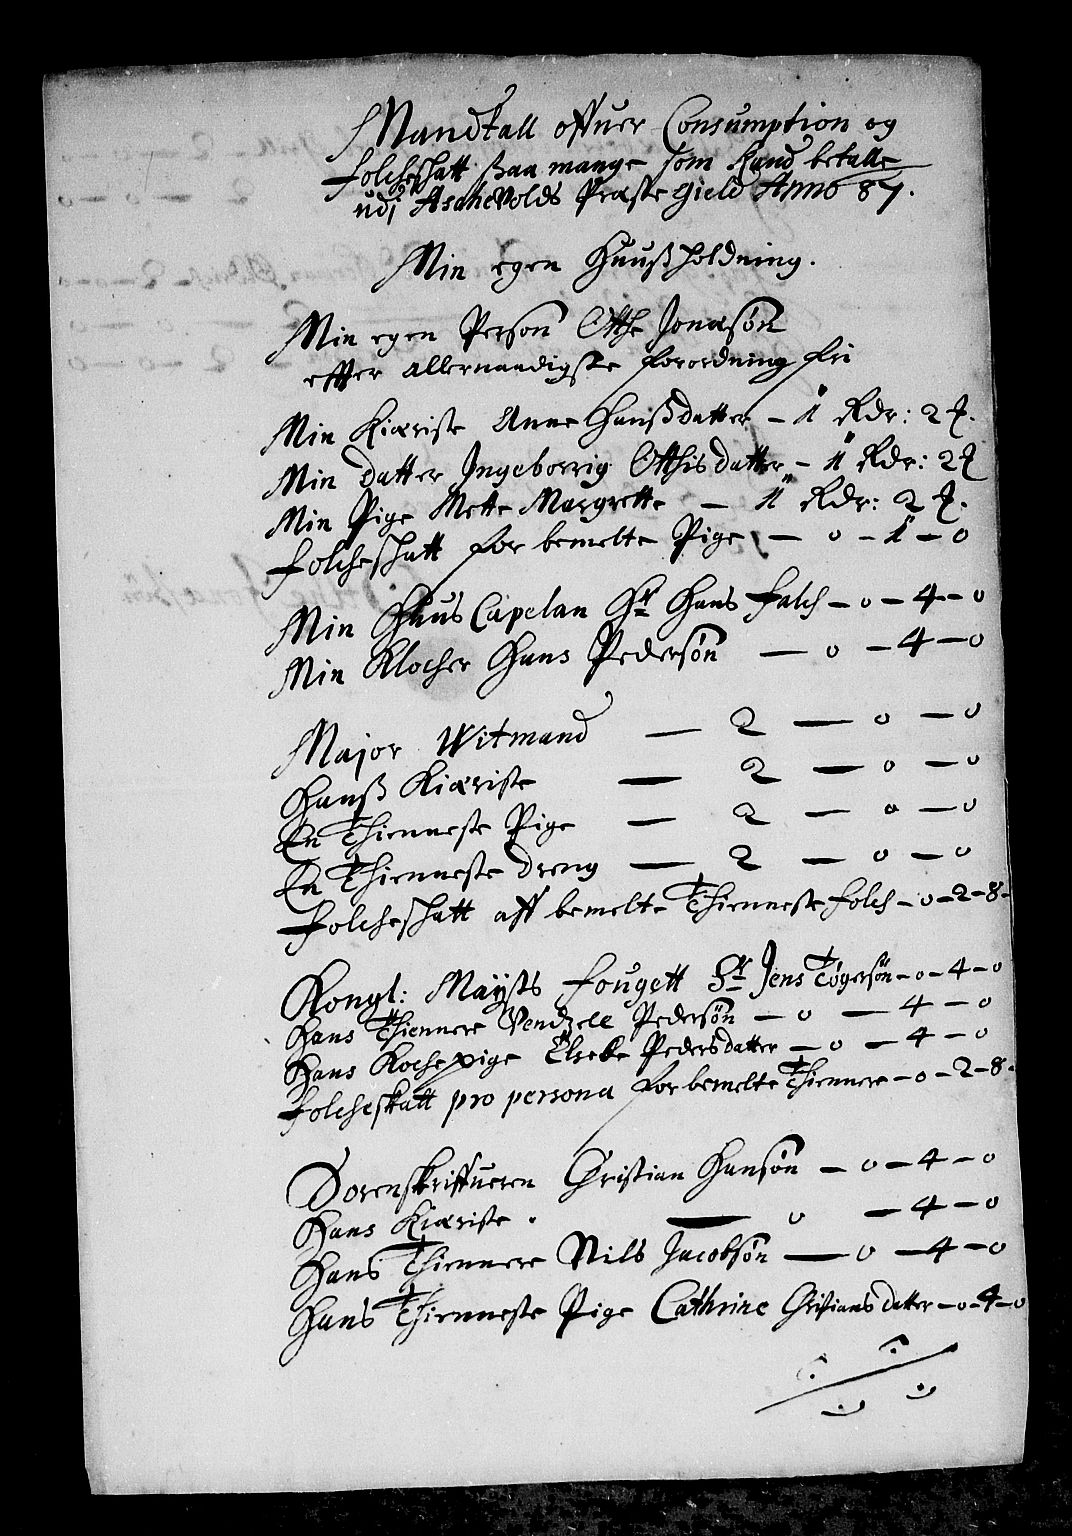 Mandtall offuer Consumption og
folcheschatt ßaa mange som kand betalle
udj Aschevolds Præste gield Anno 87.
Min egen Huußholdning.
Min egen Person Otthe Jonasøn
effter allernaadigste forordning fri
Min Kiæriste Anne Hanßdatter – 1 Rdr: 2
Min datter Ingeborrig Otthisdatter – 1 Rdr: 2
Min Pige Mette Margrette – 1 Rdr: 2
folcheschatt for bemelte Pige – 0 – 1 – 0
Min Huus Capelan Hr Hans falch – 0 – 4 – 0
Min Klocher Hans Pedersøn – 0 – 4 – 0
Major Witmand – 2 – 0 – 0
Hanß Kiæriste – 2 – 0 – 0
En Thienneste Pige – 2 – 0 – 0
En Thienneste dreng – 2 – 0 – 0
folcheschatt aff bemelte Thienneste folch – 0 – 2 – 8 –
Kongl: Maysts fougett Sr Jens Tøgersøn – 0 – 4 – 0
Hans Thiennere Vendzell Pedersøn – 0 – 4 – 0
Hans Kochepige Elsebe Pedersdatter – 0 – 4 – 0
folcheskatt pro persona for bemelte Thiennere – 0 – 2 – 8 –
Sorenskriffueren Christian Hansøn – 0 – 4 – 0
Hans Kiæriste . – 0 – 4 – 0
Hans Thiennere Nils Jacobsøn – 0 – 4 – 0
Hans Thienneste Pige Cathrine Christiansdatter – 0 – 4 – 0